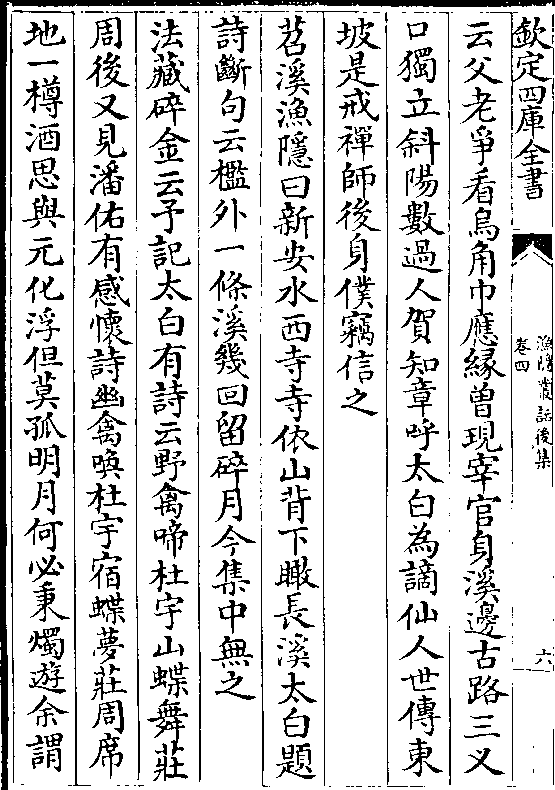 欽定四庫全書
漁隱叢話後集
卷四
六
云父老爭看烏角巾應縁曽現宰官身溪邊古路三乂
口獨立斜陽數過人賀知章呼太白為謫仙人世傳東
坡是戒禪師後身僕竊信之
苕溪漁隱曰新安水西寺寺依山背下瞰長溪太白題
詩斷句云檻外一條溪幾回留碎月今集中無之
法藏碎金云予記太白有詩云野禽啼杜宇山蝶舞莊
周後又見潘佑有感懷詩幽禽喚杜宇宿蝶夢莊周席
地一樽酒思與元化浮但莫孤明月何必秉燭遊余謂